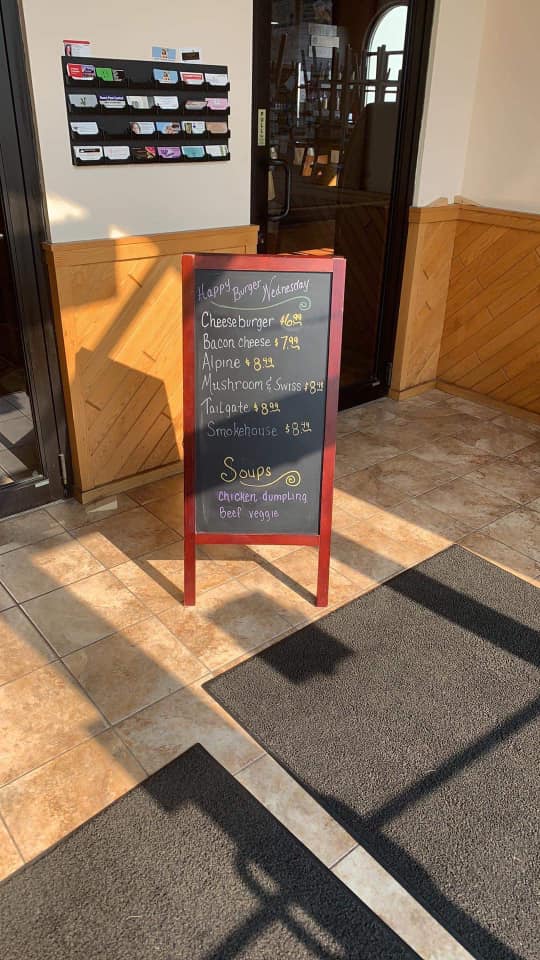 PULL
Happy Burger Wednesday
Cheeseburger $6.99
Bacon cheese $7.99
Alpine $8.49
Mushroom & Swiss $8.49
Tailgate $8.99
Smokehouse $8.49
Soups
chicken dumpling
Beef veggie